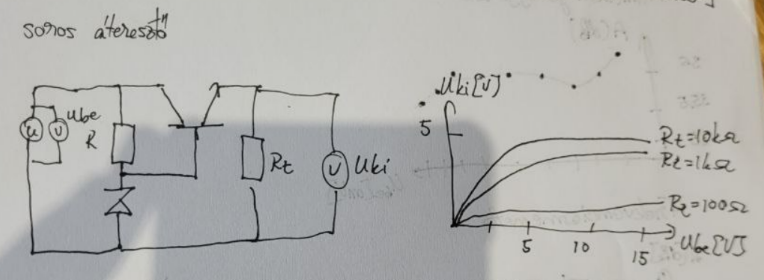 soros áteresztő
u
V
Ube
R
Rt
V
Uki
Uki[V]
5
Rt=10kΩ
Rt=1kΩ
Rt=100Ω
5 10 15
Ube[V]